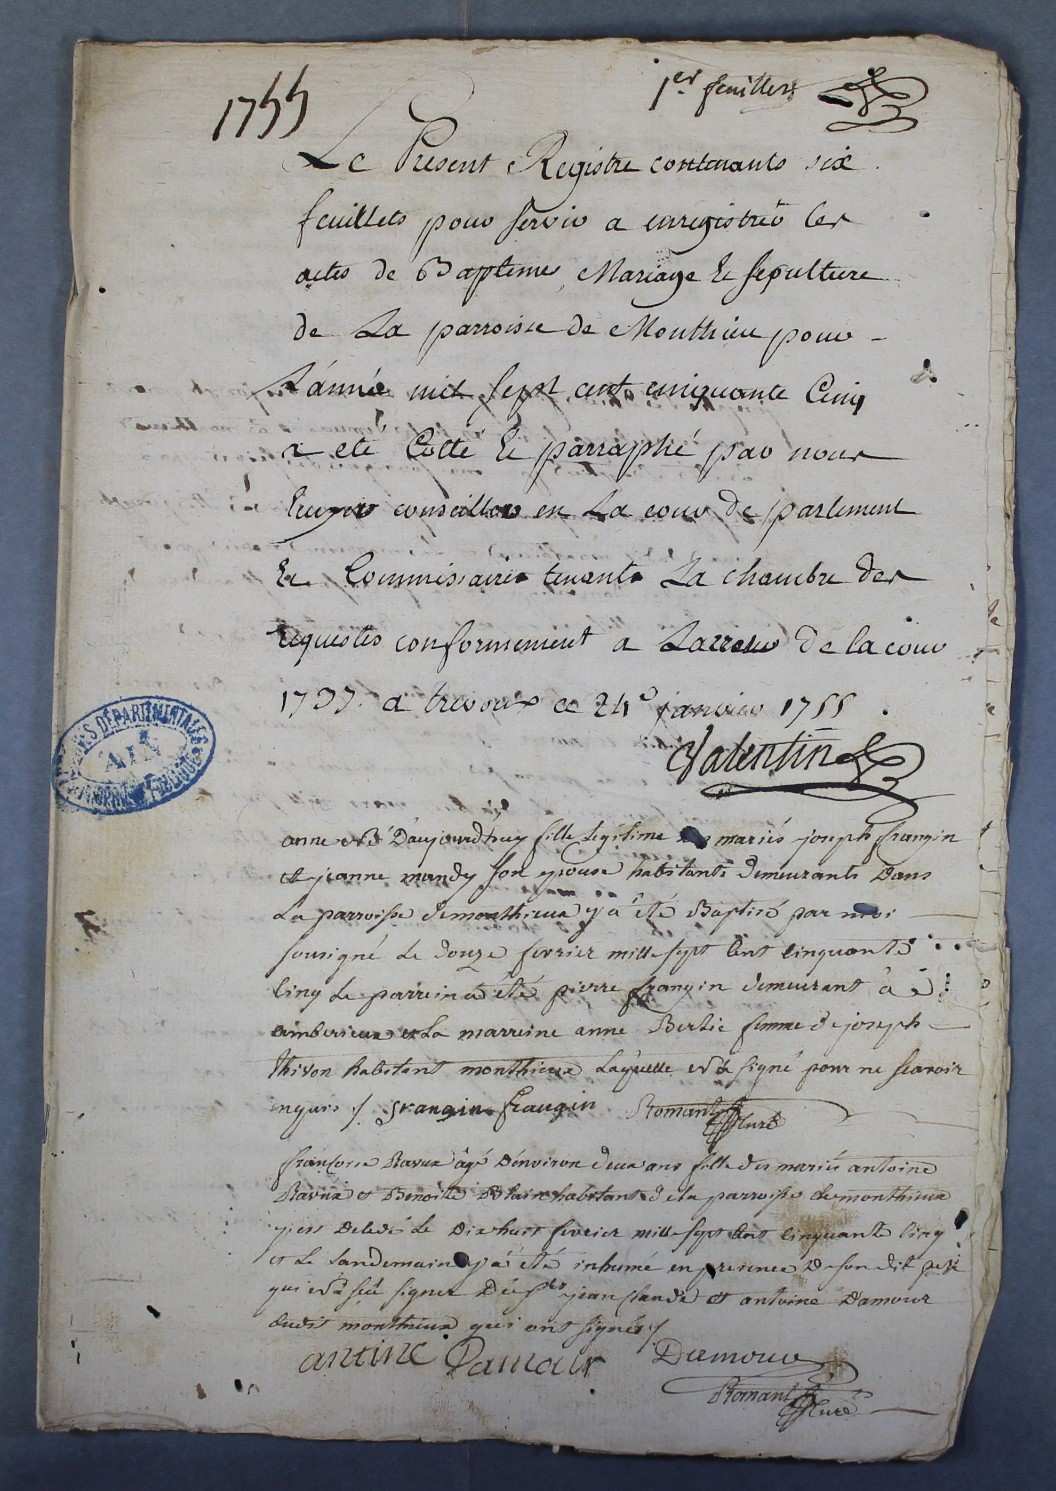 1755
1er feuillet
Le Present Registre contenants six
feuillets pour servir a enregistrer les
actes de Baptemes, Mariage & sepulture
de La parroisse de Monthieu pour
L'année mil sept cent cinquante Cinq
a eté Cotté & parraphé par nous
Ecuyer conseiller en La cour de parlement
& Commissaire tenants La chambre des
requestes conformement a Larrest de la cour
1737. a trevoux ce 24e janvier 1755.
Valentin
ARCHIVES DÉPARTEMENTALES
AIN
anne née D'aujourdhuy fille legitime des mariés joseph frangin
et jeanne mandy son epouse habitants demeurants Dans
La parroisse de monthieux y a été Baptisé par moi
sousigné Le douze fevrier mille sept Cent Cinquante
Cinq Le parrein a été pierre frangin demeurant à
amberieux et La marreine anne Berlie femme de joseph
thivon habitant monthieux Laquelle n'a signé pour ne scavoir
enquis / frangin Romant
Curé
françoise Ravux âgé D'environ deux ans fille des mariés antoine
Ravux et Benoite habitant de la parroisse de monthieux
y est Decedé Le Dix huit fevrier mille sept Cent Cinquante Cinq
et Le Landemain y a été inhumé en presence De son dit pere
qui n'a sçû signer De jean Claude et antoine Damour
dudit monthieux qui ont signés /
antine Damour Damour
Romant
Curé